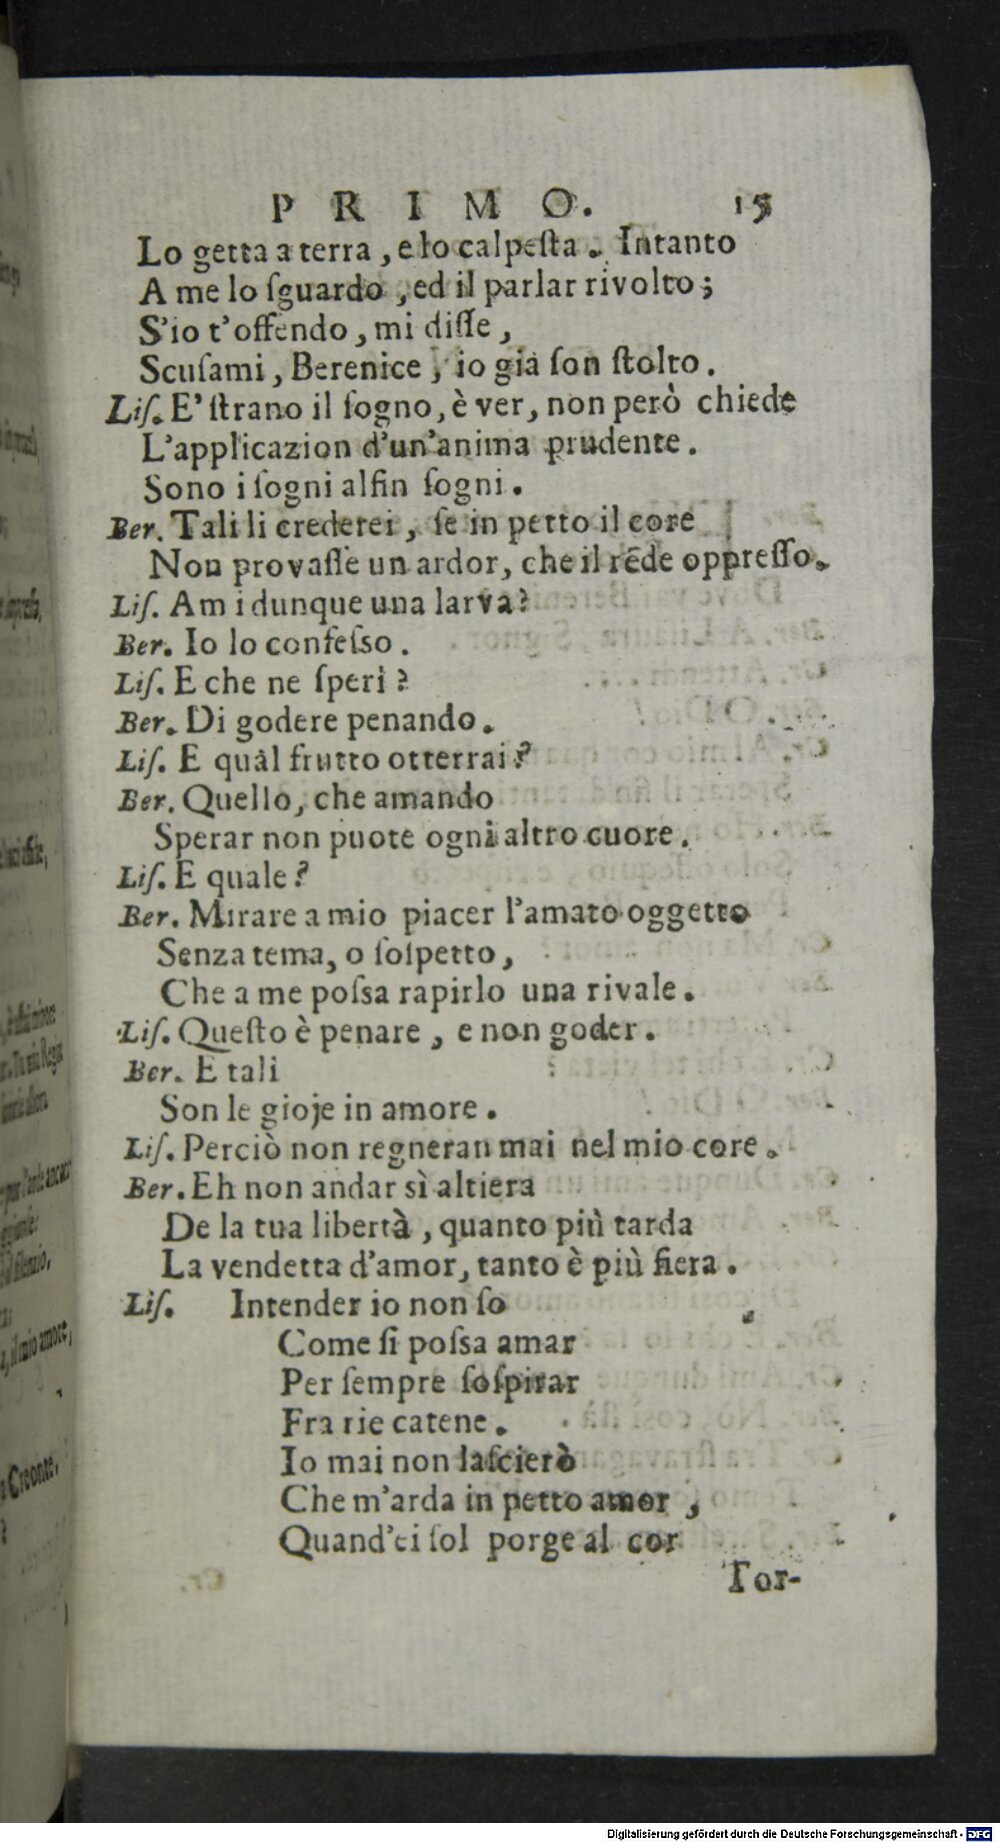 PRIMO. 15
Lo getta a terra, e lo calpeſta. Intanto
A me lo ſguardo, ed il parlar rivolto;
S'io t'offendo, mi diſſe,
Scuſami, Berenice, io già ſon ſtolto.
Liſ. E' ſtrano il ſogno, è ver, non però chiede
L'applicazion d'un'anima prudente.
Sono i ſogni alfin ſogni.
Ber. Tali li crederei, ſe in petto il core
Non provaſſe un ardor, che il rẽde oppreſſo.
Liſ. Ami dunque una larva?
Ber. Io lo confeſſo.
Liſ. E che ne ſperi?
Ber. Di godere penando.
Liſ. E quàl frutto otterrai?
Ber. Quello, che amando
Sperar non puote ogni altro cuore.
Liſ. E quale?
Ber. Mirare a mio piacer l'amato oggetto
Senza tema, o ſoſpetto,
Che a me poſsa rapirlo una rivale.
Liſ. Queſto è penare, e non goder.
Ber. E tali
Son le gioje in amore.
Liſ. Perciò non regneran mai nel mio core.
Ber. Eh non andar sì altiera
De la tua libertà, quanto più tarda
La vendetta d'amor, tanto è più fiera.
Liſ. Intender io non ſo
Come ſi poſsa amar
Per ſempre ſoſpirar
Fra rie catene.
Io mai non laſcierò
Che m'arda in petto amor,
Quand'ei ſol porge al cor
Tor-
Digitalisierung gefördert durch die Deutsche Forschungsgemeinschaft - DFG